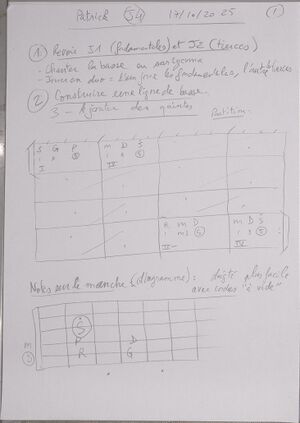 Patrick J4 17/10/2025 ①
① Revoir J1 (fondamentales) et J2 (tierces)
- Chanter la basse en
- Jouer en duo = l'un joue les fondamentales, l'autre tierces
② Construire une ligne de basse.
3 - Ajouter des quintes
Partition
S G P m D S
i p ⑤ i ⑤
I IV
R m D m D S
i m ⑤ i ⑤
II- IV
Notes sur le manche (diagramme) : doigté plus facile
avec cordes "à vide"
S
P D
m R G